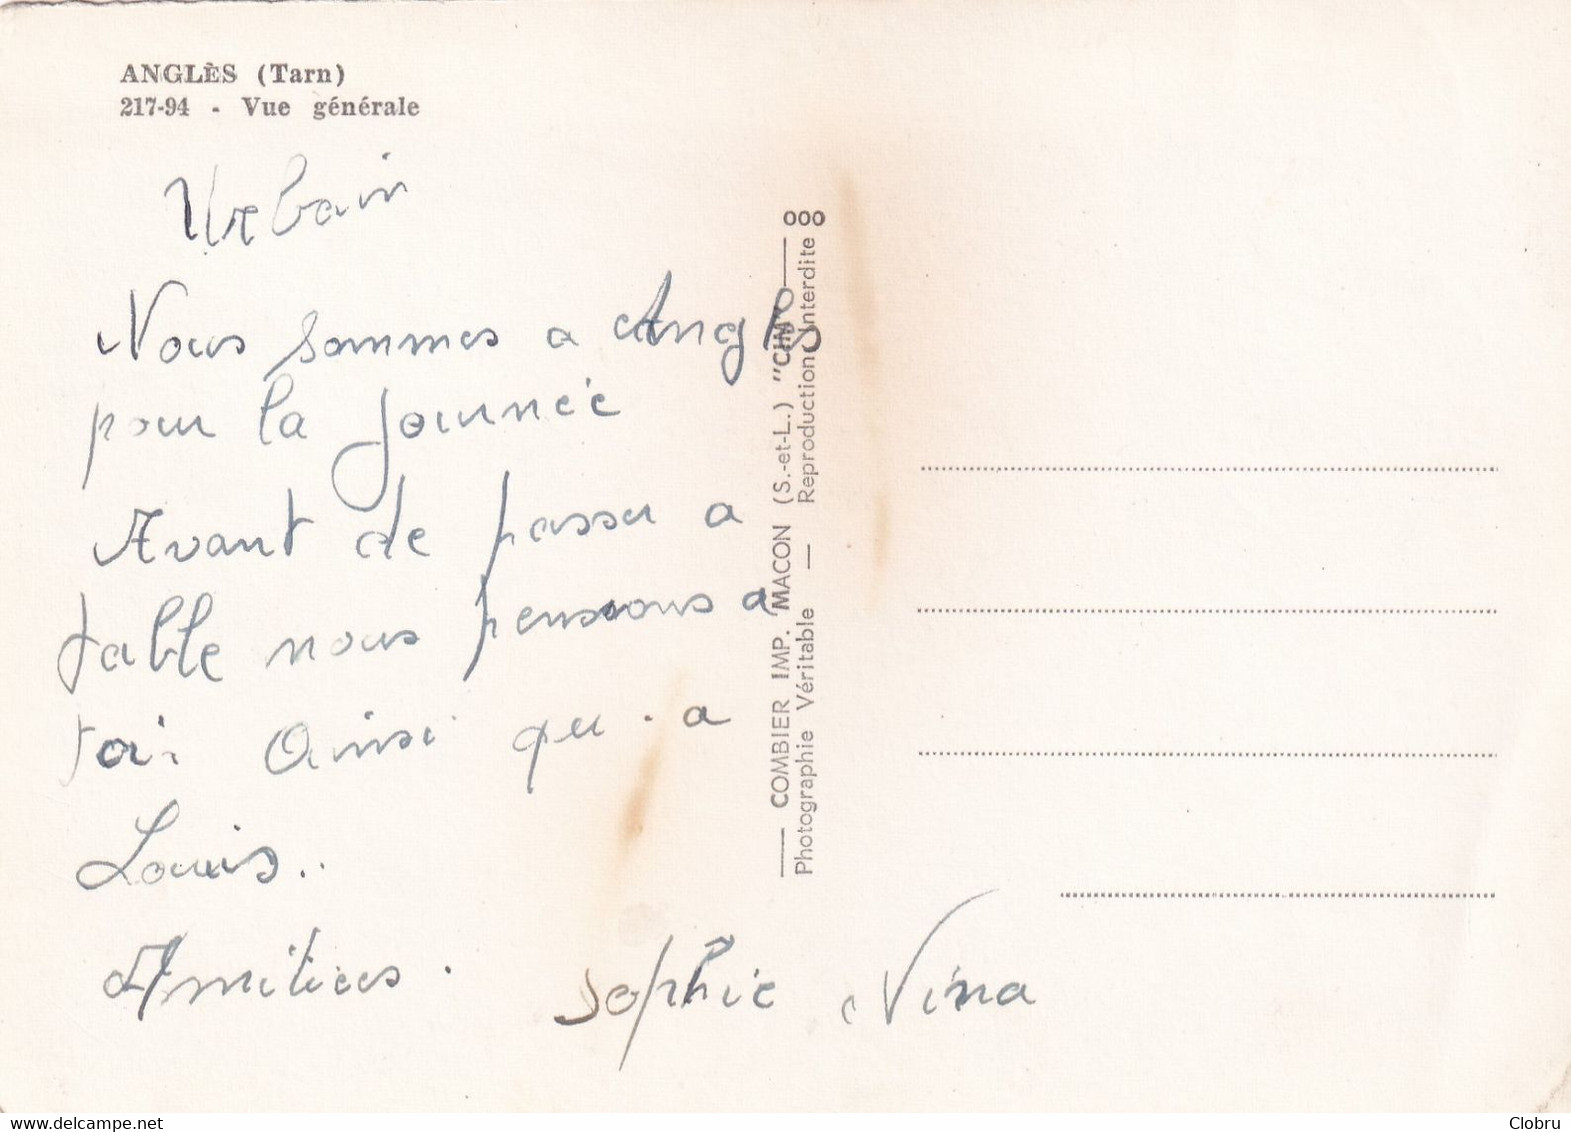 ANGLÈS (Tarn)
217-94 - Vue générale
Urbain
Nous sommes a Angls
pour la journée
Avant de passer a
table nous pensons a
toi ainsi qu'a
Louis..
Amitiees.
Sophie Nina
000
COMBIER IMP. MACON (S.-et-L.) "CIM"
Photographie Véritable — Reproduction Interdite
Clobru